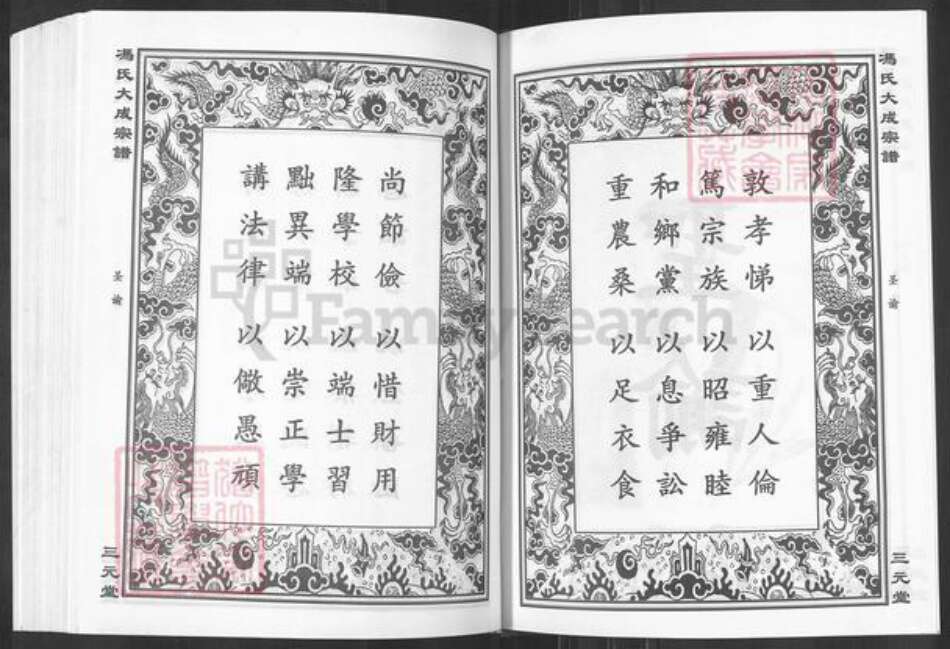 馮氏大成宗譜
圣諭
三元堂
敦孝悌以重人倫
篤宗族以昭雍睦
和鄉黨以息爭訟
重農桑以足衣食
尚節儉以惜財用
隆學校以端士習
黜異端以崇正學
講法律以儆愚頑
馮氏大成宗譜
圣諭
三元堂
FamilySearch